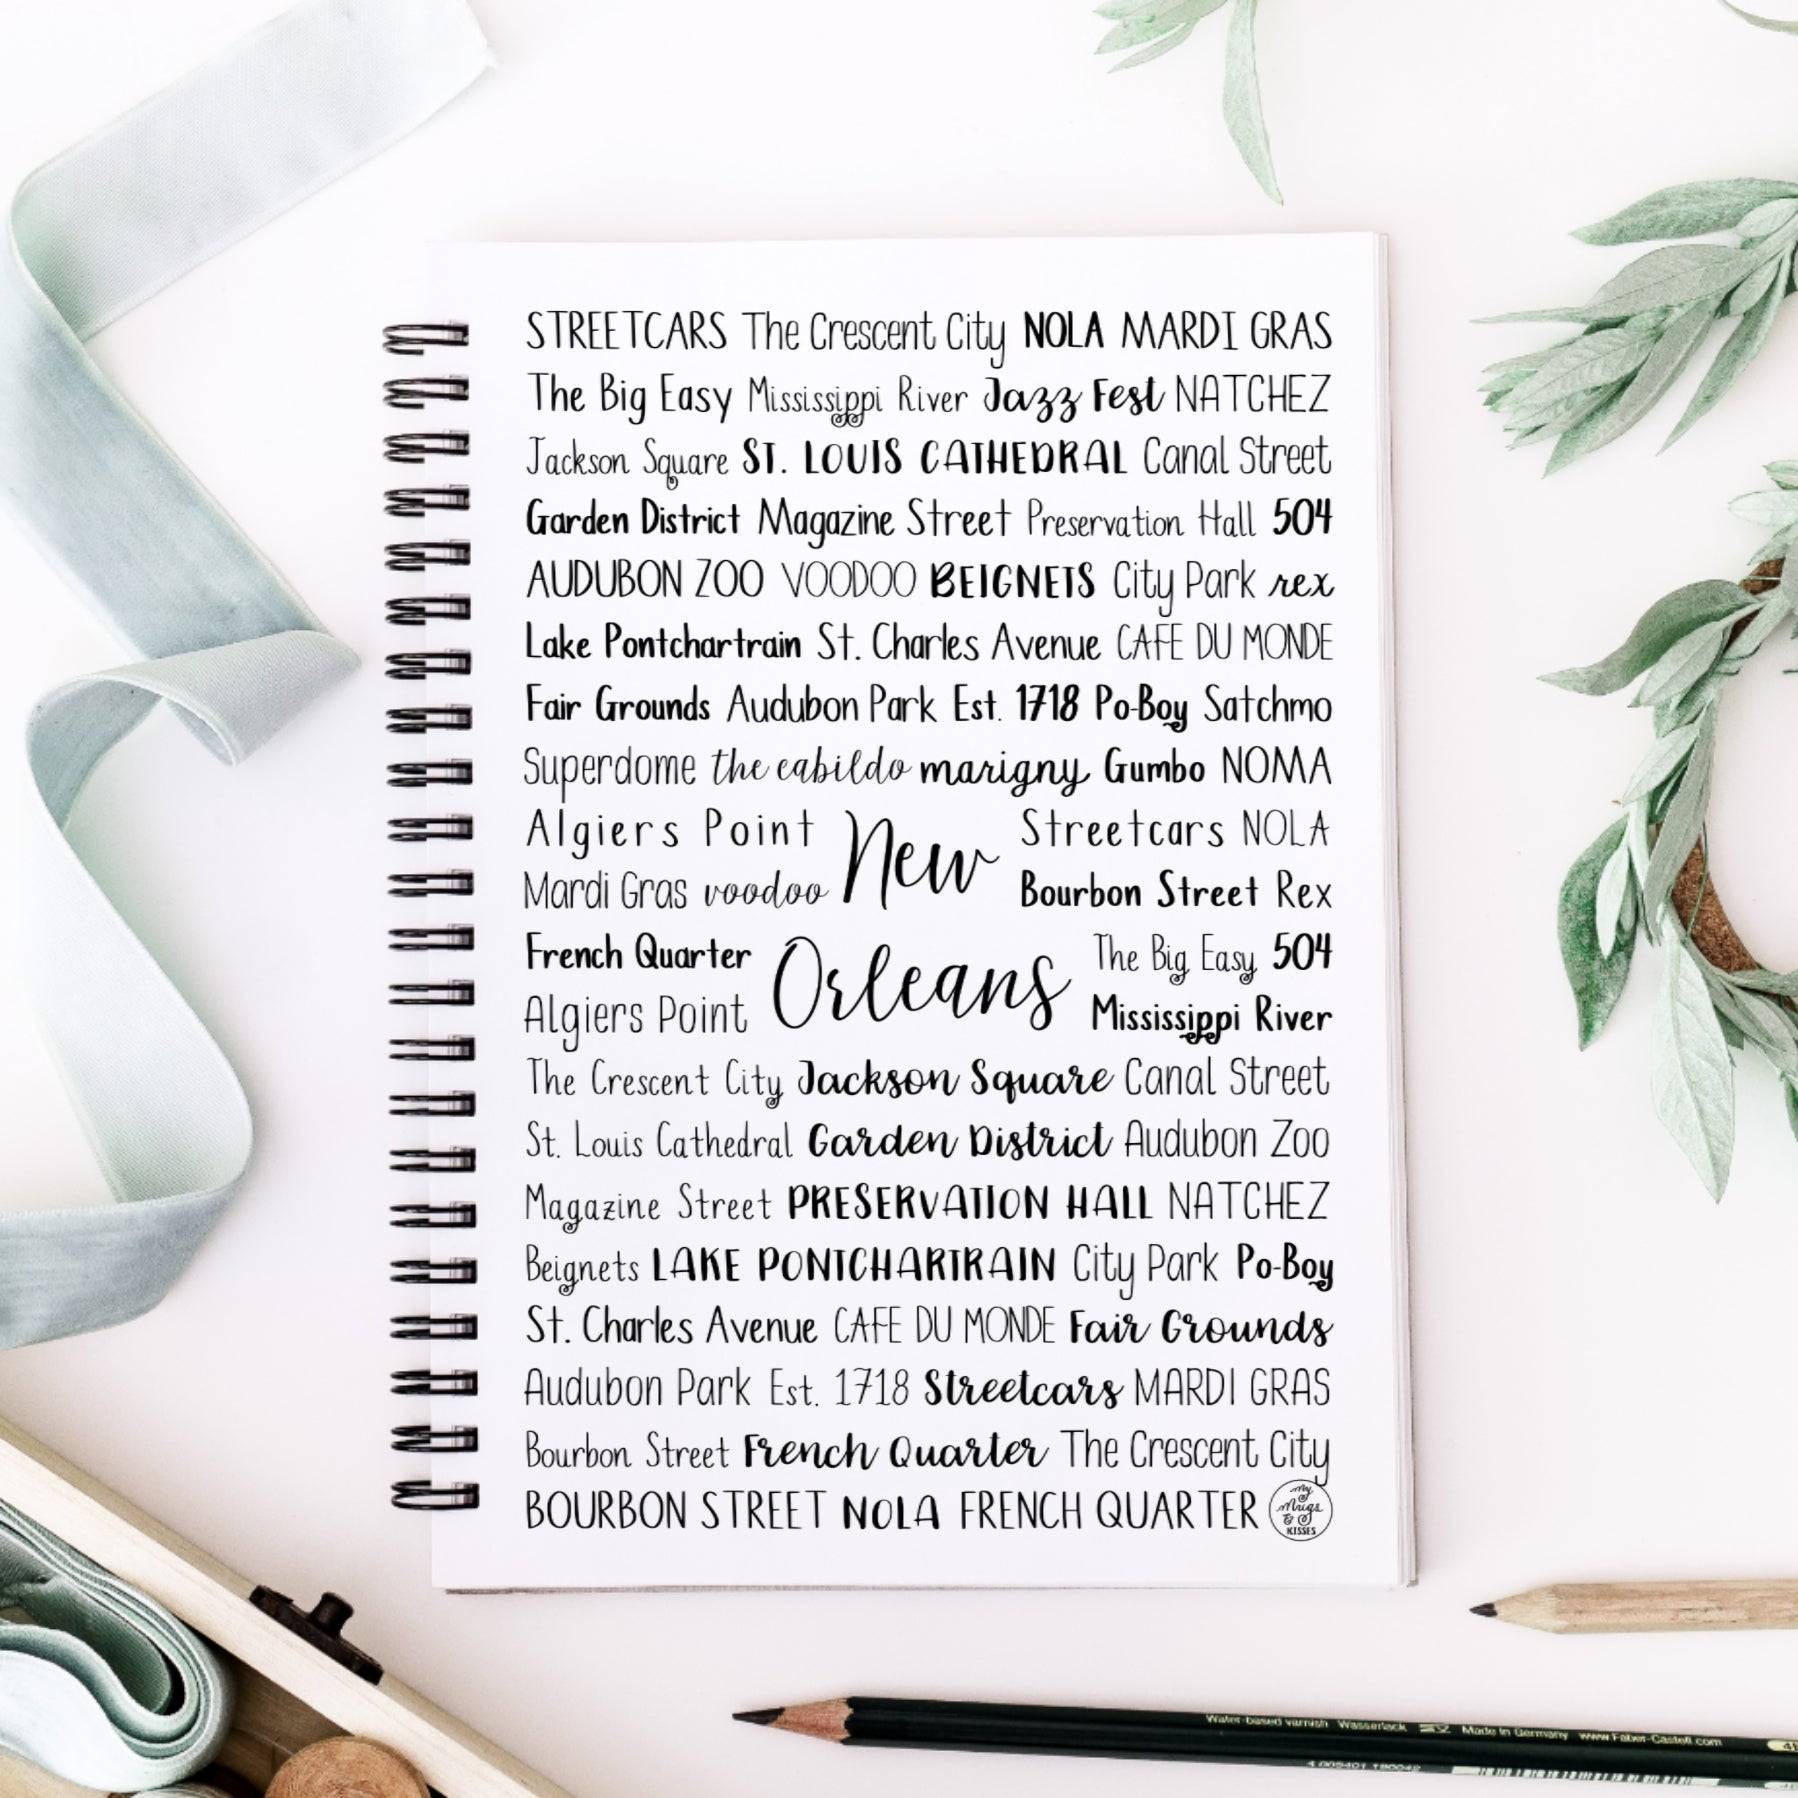 STREETCARS The Crescent City NOLA MARDI GRAS
The Big Easy Mississippi River Jazz Fest NATCHEZ
Jackson Square ST. LOUIS CATHEDRAL Canal Street
Garden District Magazine Street Preservation Hall 504
AUDUBON ZOO VOODOO BEIGNETS City Park rex
Lake Pontchartrain St. Charles Avenue CAFE DU MONDE
Fair Grounds Audubon Park Est. 1718 Po-Boy Satchmo
Superdome the cabildo marigny Gumbo NOMA
Algiers Point Streetcars NOLA
New
Mardi Gras voodoo Bourbon Street Rex
French Quarter The Big Easy 504
Orleans
Algiers Point Mississippi River
The Crescent City Jackson Square Canal Street
St. Louis Cathedral Garden District Audubon Zoo
Magazine Street PRESERVATION HALL NATCHEZ
Beignets LAKE PONTCHARTRAIN City Park Po-Boy
St. Charles Avenue CAFE DU MONDE Fair Grounds
Audubon Park Est. 1718 Streetcars MARDI GRAS
Bourbon Street French Quarter The Crescent City
BOURBON STREET NOLA FRENCH QUARTER
my
Mugs
&
KISSES
Water-based varnish Wasserlack Made in Germany www.Faber-Castell.com
4 005401 190042